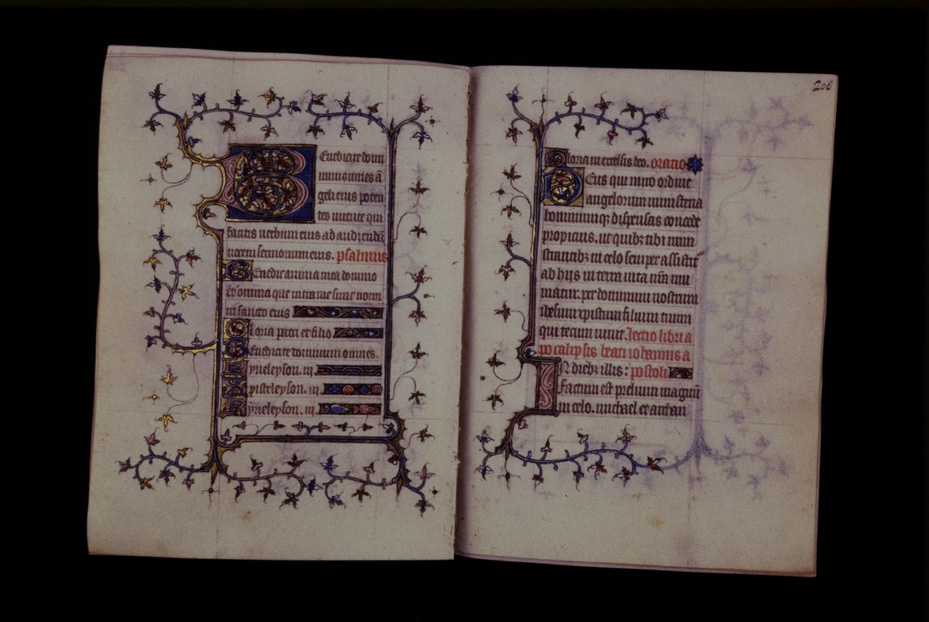 Benedicite domi
num omnes a
geli eius poten
tes uirtute qui
facitis uerbum eius ad audiendā
uocem sermonum eius. psalmus
Benedic anima mea domino
et omnia que intra me sunt nomi
ni sancto eius
Gloria patri et filio
Benedicite dominum omnes.
kyrieleyson. iii.
xpisteleyson. iii.
kyrieleyson. iii.
206
Gloria in excelsis deo. oratio
Deus qui miro ordine
angelorum ministeria
hominumq; dispensas concede
propicius. ut quibz tibi mini
strantibz in celo semper assistit
ab hijs in terra uita nr̄a mu
niatur. per dominum nostrum
ihesum xpistum filium tuum
qui tecum uiuit. lectio libri a
pocalipsis beati iohannis a
In diebz illis: postoli
Factum est prelium magnū
in celo. michael et